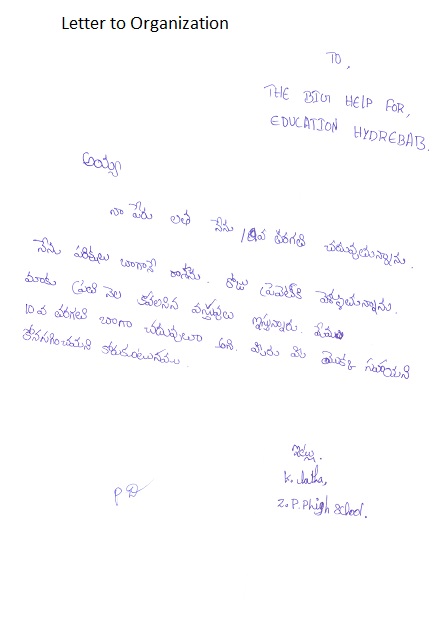 Letter to Organization
TO,
THE BIG HELP FOR,
EDUCATION HYDREBAB.
అయ్యా
నా పేరు లత నేను 10వ తరగతి చదువుతున్నాను.
నేను పరిక్షలు బాగానే రాసాను. రోజు ప్రైవేట్‌కి వెళ్తున్నాను.
మాకు ప్రతి నెల కావలసిన వస్తువులు ఇస్తున్నారు. మేము
10వ తరగతి బాగా చదువుతాం అని. మీరు మీ యొక్క సహాయని
కోనసాగించమని కోరుకుంటున్నాము.
ఇట్లు.
K. latha,
Z.P.P high school.